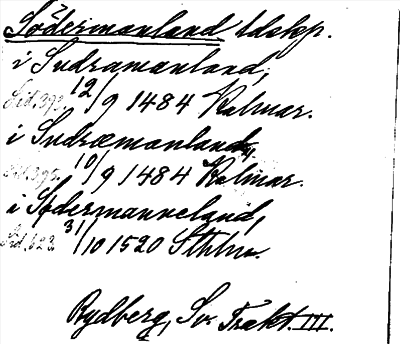 Södermanland ldskp.
i Sudramanland,
Sid. 393. 12/9 1484 Kalmar.
i Sudræmanland,
Sid. 395. 10/9 1484 Kalmar.
i Södermanneland,
Sid. 623. 31/10 1520 Sthlm.
Rydberg, Sv. Trakt. III.